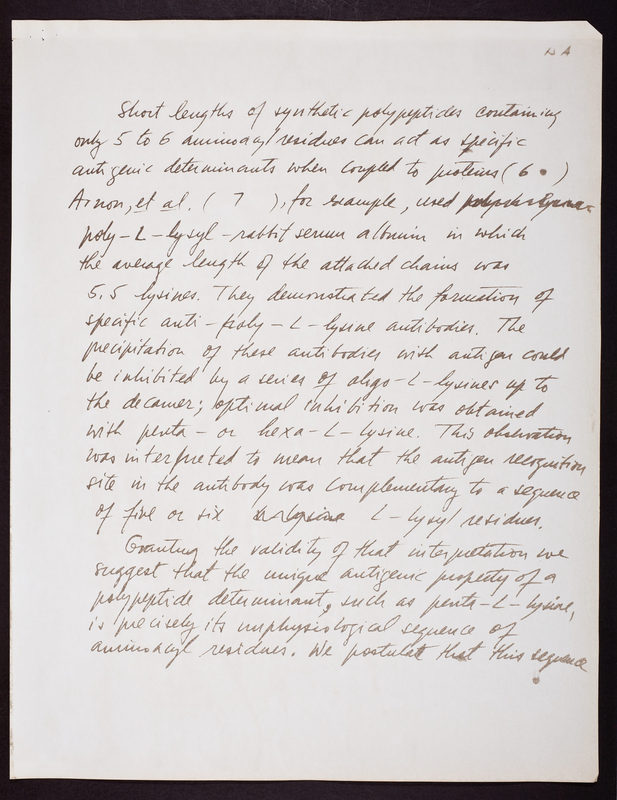 Short lengths of synthetic polypeptides containing
only 5 to 6 aminoacyl residues can act as specific
antigenic determinants when coupled to proteins ( 6 )
Arnon, et al. ( 7 ), for example, used
poly-L-lysyl-rabbit serum albumin in which
the average length of the attached chains was
5.5 lysines. They demonstrated the formation of
specific anti-poly-L-lysine antibodies. The
precipitation of these antibodies with antigen could
be inhibited by a series of oligo-L-lysines up to
the decamer; optimal inhibition was obtained
with penta- or hexa-L-lysine. This observation
was interpreted to mean that the antigen recognition
site in the antibody was complementary to a sequence
of five or six L-lysyl residues.
Granting the validity of that interpretation we
suggest that the unique antigenic property of a
polypeptide determinant, such as penta-L-lysine,
is precisely its unphysiological sequence of
aminoacyl residues. We postulate that this sequence